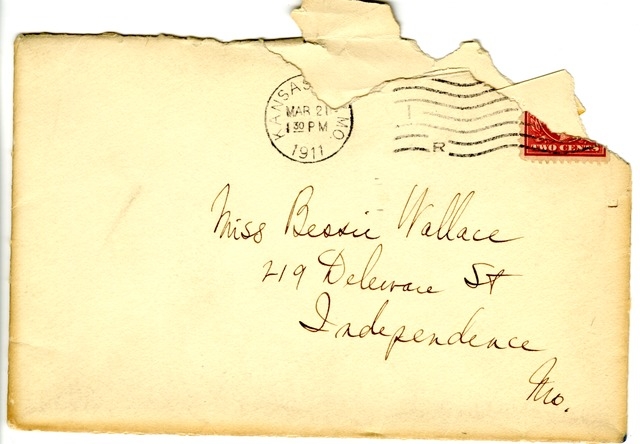 KANSAS MO.
MAR 21
1 30 PM
1911
R
TWO CENTS
Miss Bessie Wallace
219 Deleware St
Independence
Mo.